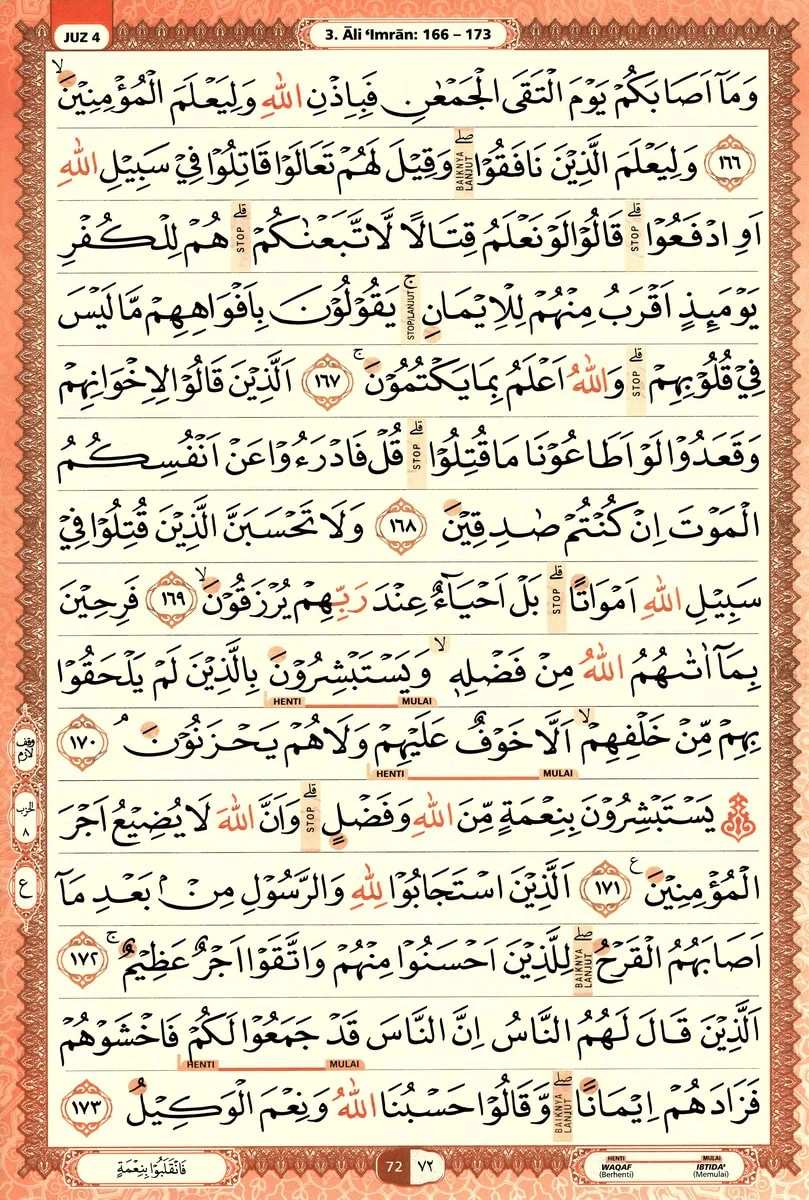 JUZ 4
3. Āli ‘Imrān: 166 – 173
وَمَآ اَصَابَكُمْ يَوْمَ الْتَقَى الْجَمْعٰنِ فَبِاِذْنِ اللّٰهِ وَلِيَعْلَمَ الْمُؤْمِنِيْنَۙ
١٦٦ وَلِيَعْلَمَ الَّذِيْنَ نَافَقُوْاۖ BAIKNYA LANJUT وَقِيْلَ لَهُمْ تَعَالَوْا قَاتِلُوْا فِيْ سَبِيْلِ اللّٰهِ
اَوِ ادْفَعُوْاۗ STOP قَالُوْا لَوْ نَعْلَمُ قِتَالًا لَّاتَّبَعْنٰكُمْۗ STOP هُمْ لِلْكُفْرِ
يَوْمَىِٕذٍ اَقْرَبُ مِنْهُمْ لِلْاِيْمَانِۚ STOP/LANJUT يَقُوْلُوْنَ بِاَفْوَاهِهِمْ مَّا لَيْسَ
فِيْ قُلُوْبِهِمْۗ STOP وَاللّٰهُ اَعْلَمُ بِمَا يَكْتُمُوْنَۚ ١٦٧ اَلَّذِيْنَ قَالُوْا لِاِخْوَانِهِمْ
وَقَعَدُوْا لَوْ اَطَاعُوْنَا مَا قُتِلُوْاۗ STOP قُلْ فَادْرَءُوْا عَنْ اَنْفُسِكُمُ
الْمَوْتَ اِنْ كُنْتُمْ صٰدِقِيْنَ ١٦٨ وَلَا تَحْسَبَنَّ الَّذِيْنَ قُتِلُوْا فِيْ
سَبِيْلِ اللّٰهِ اَمْوَاتًاۗ STOP بَلْ اَحْيَاۤءٌ عِنْدَ رَبِّهِمْ يُرْزَقُوْنَۙ ١٦٩ فَرِحِيْنَ
بِمَآ اٰتٰىهُمُ اللّٰهُ مِنْ فَضْلِهٖۙ وَيَسْتَبْشِرُوْنَ بِالَّذِيْنَ لَمْ يَلْحَقُوْا
HENTI MULAI
بِهِمْ مِّنْ خَلْفِهِمْۙ اَلَّا خَوْفٌ عَلَيْهِمْ وَلَا هُمْ يَحْزَنُوْنَۘ ١٧٠
HENTI MULAI
يَسْتَبْشِرُوْنَ بِنِعْمَةٍ مِّنَ اللّٰهِ وَفَضْلٍۗ STOP وَاَنَّ اللّٰهَ لَا يُضِيْعُ اَجْرَ
الْمُؤْمِنِيْنَࣖ ١٧١ اَلَّذِيْنَ اسْتَجَابُوْا لِلّٰهِ وَالرَّسُوْلِ مِنْۢ بَعْدِ مَآ
اَصَابَهُمُ الْقَرْحُۖ BAIKNYA LANJUT لِلَّذِيْنَ اَحْسَنُوْا مِنْهُمْ وَاتَّقَوْا اَجْرٌ عَظِيْمٌۚ ١٧٢
اَلَّذِيْنَ قَالَ لَهُمُ النَّاسُ اِنَّ النَّاسَ قَدْ جَمَعُوْا لَكُمْ فَاخْشَوْهُمْ
HENTI MULAI
فَزَادَهُمْ اِيْمَانًاۖ BAIKNYA LANJUT وَّقَالُوْا حَسْبُنَا اللّٰهُ وَنِعْمَ الْوَكِيْلُ ١٧٣
وقف لازم
الحزب ٨
ع
فَانْقَلَبُوْا بِنِعْمَةٍ
72 ٧٢
HENTI MULAI
WAQAF IBTIDA’
(Berhenti) (Memulai)